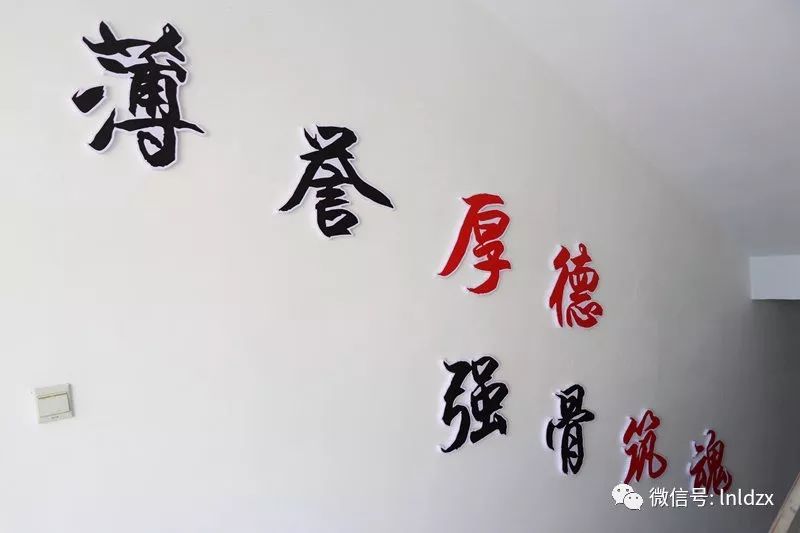 薄誉厚德
强骨筑魂
微信号: lnldzx